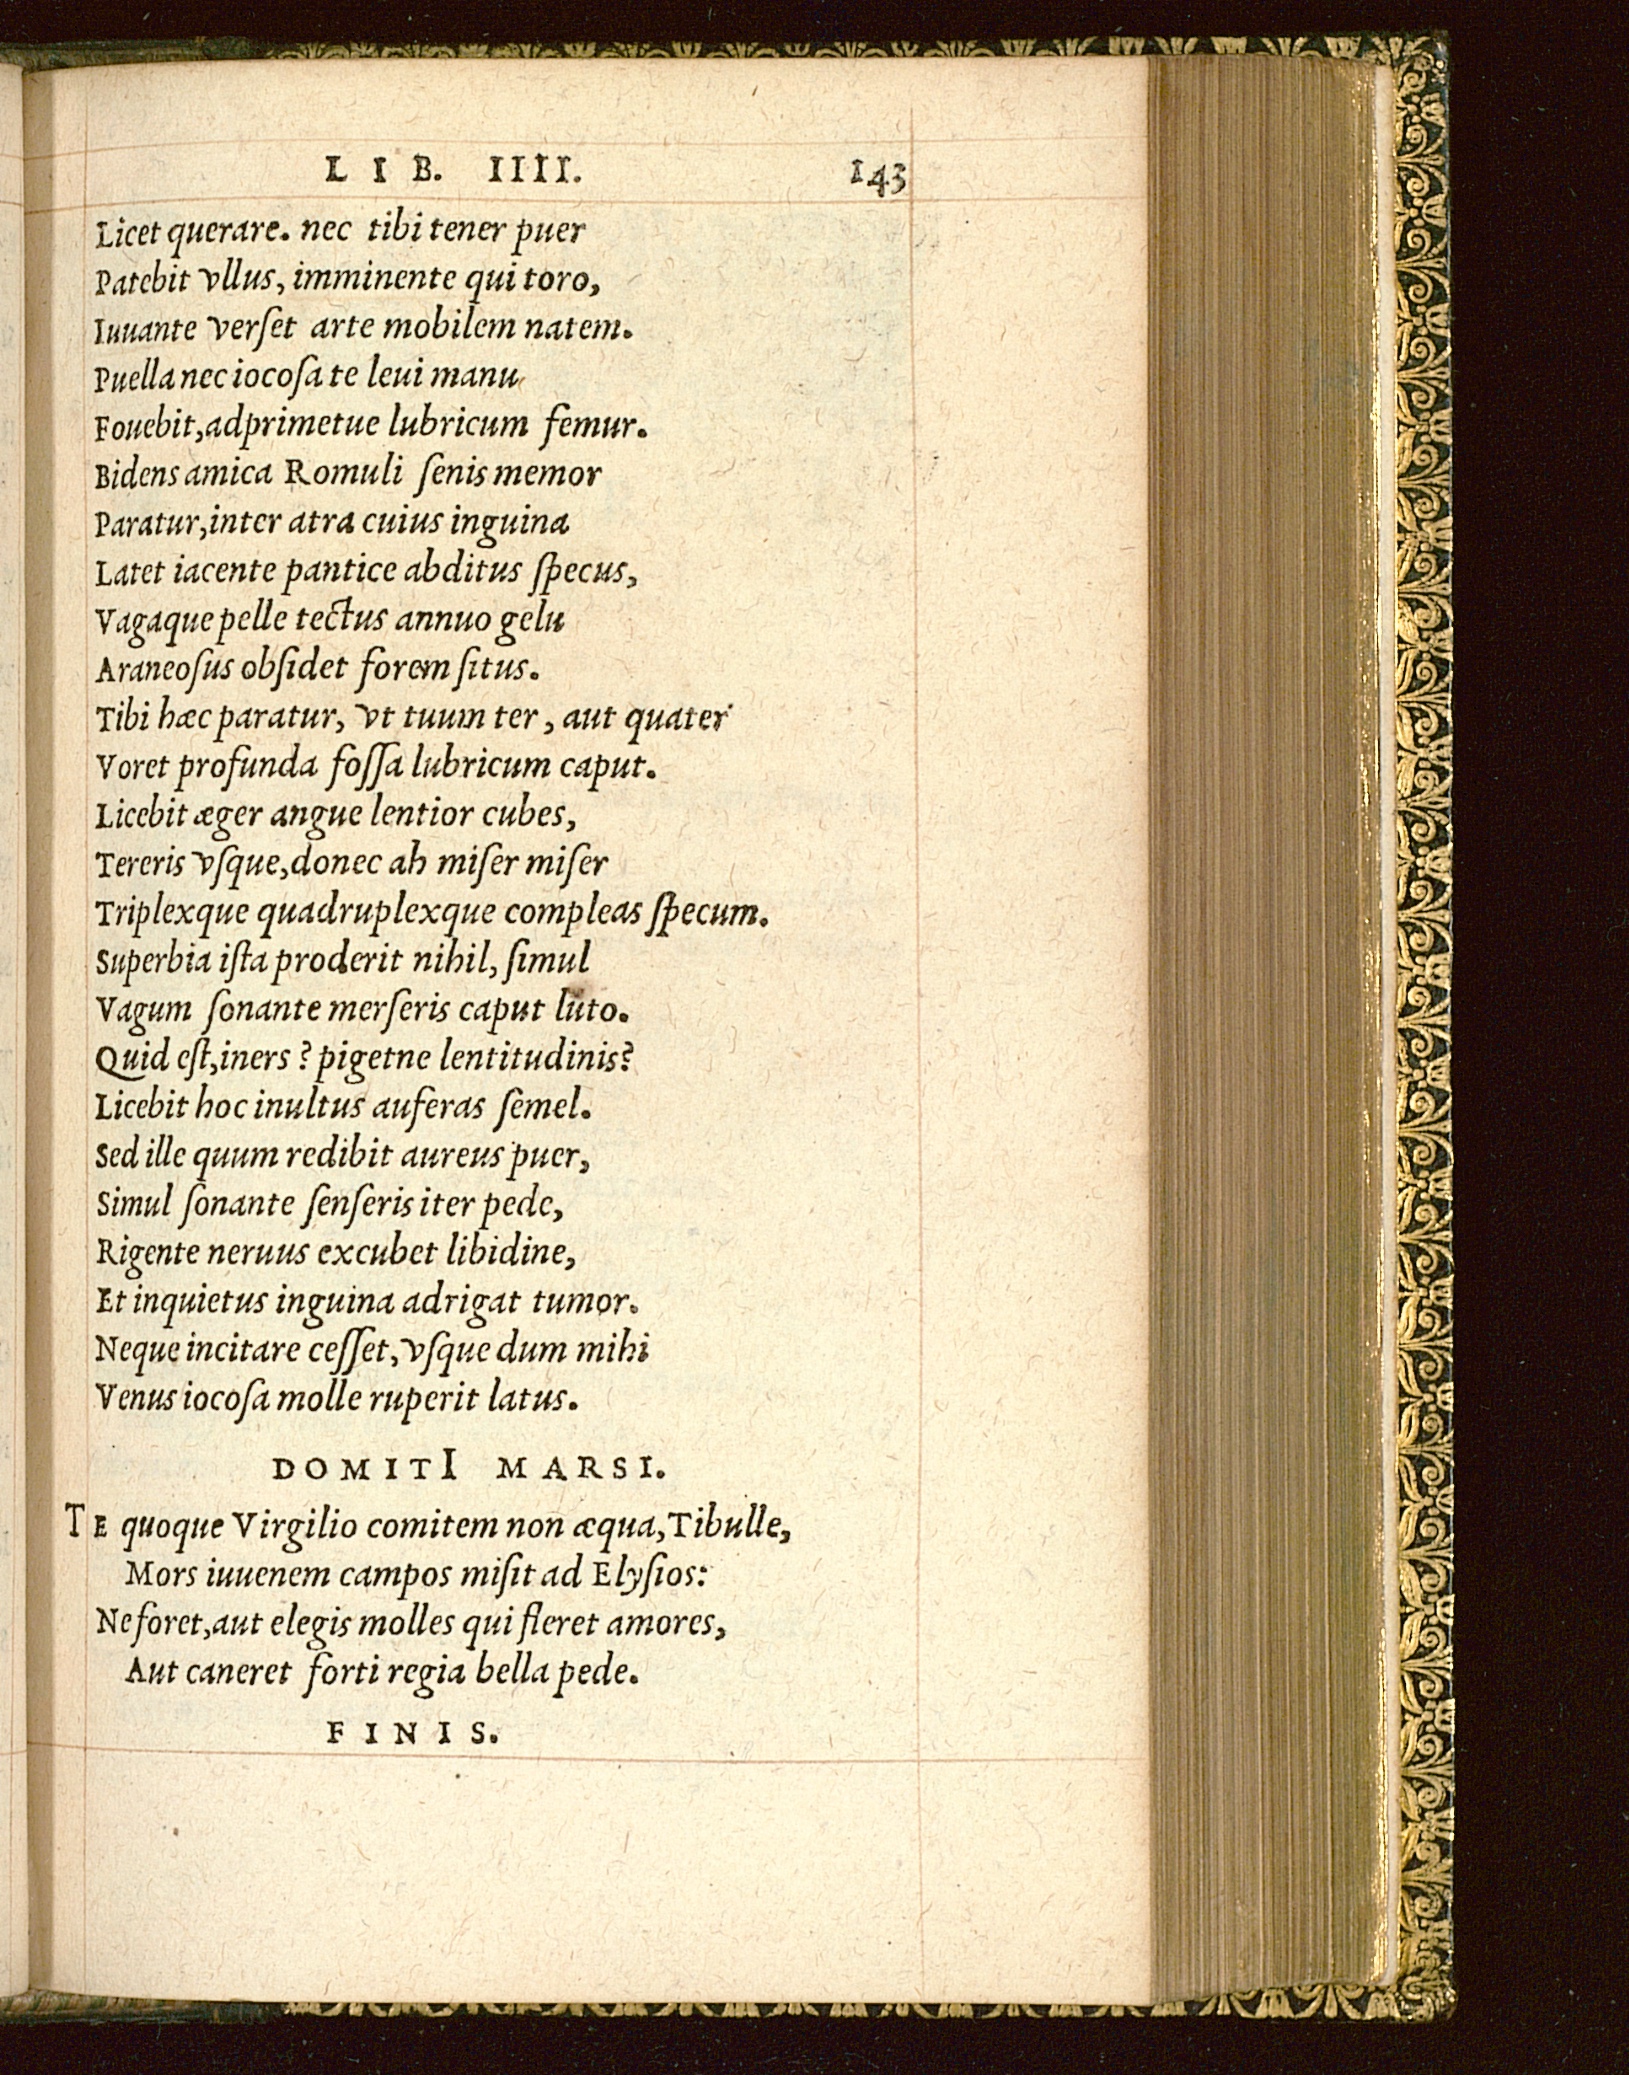 LIB. IIII. 143
Licet querare. nec tibi tener puer
Patebit vllus, imminente qui toro,
Iuuante verſet arte mobilem natem.
Puella nec iocoſa te leui manu
Fouebit, adprimetue lubricum femur.
Bidens amica Romuli ſenis memor
Paratur, inter atra cuius inguina
Latet iacente pantice abditus ſpecus,
Vagaque pelle tectus annuo gelu
Araneoſus obſidet forem ſitus.
Tibi hæc paratur, vt tuum ter, aut quater
Voret profunda foſſa lubricum caput.
Licebit æger angue lentior cubes,
Tereris vſque, donec ah miſer miſer
Triplexque quadruplexque compleas ſpecum.
Superbia iſta proderit nihil, ſimul
Vagum ſonante merſeris caput luto.
Quid eſt, iners? pigetne lentitudinis?
Licebit hoc inultus auferas ſemel.
Sed ille quum redibit aureus puer,
Simul ſonante ſenſeris iter pede,
Rigente neruus excubet libidine,
Et inquietus inguina adrigat tumor.
Neque incitare ceſſet, vſque dum mihi
Venus iocoſa molle ruperit latus.
DOMITI MARSI.
TE quoque Virgilio comitem non æqua, Tibulle,
Mors iuuenem campos miſit ad Elyſios:
Ne foret, aut elegis molles qui fleret amores,
Aut caneret forti regia bella pede.
FINIS.